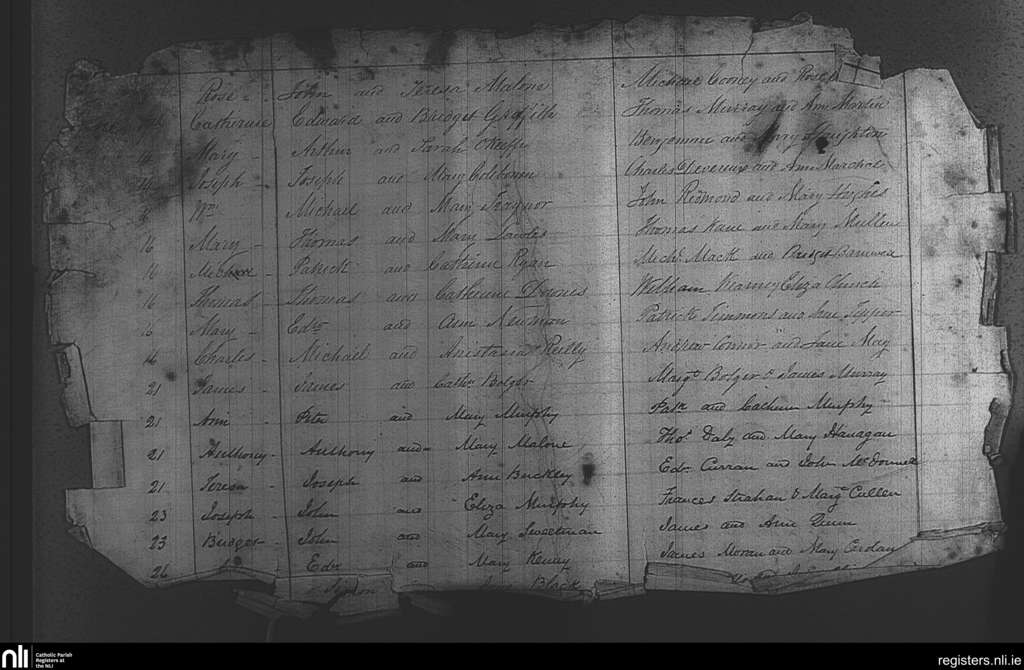 Rose - John and Teresa Malone Michael Cooney and Rose
Catherine Edward and Bridget Griffith Thomas Murray and Ann Martin
14 Mary - Arthur and Sarah O'Keeffe Benjamine and Mary
14 Joseph - Joseph and Mary Charles Devereux and Ann Marshal
Wm Michael and Mary Traynor John Redmond and Mary Hughes
16 Mary - Thomas and Mary Lawles Thomas Kane and Mary Mullen
16 Michael - Patrick and Catherine Ryan Michl Mack and Bridget Barnwell
16 Thomas - Thomas and Catherine Downes William Kearney Eliza Church
16 Mary - Edwd and Ann Newman Patrick Timmons and Ann
16 Charles - Michael and Anastasia Reilly Andrew Connor and Jane May
21 James - James and Cathn Bolger Margt Bolger & James Murray
21 Ann Peter and Mary Murphy Patk and Catherine Murphy
21 Anthony - Anthony and Mary Malone Thos Daly and Mary Hanagan
21 Teresa - Joseph and Ann Buckley Edw Curran and John McDonnell
23 Joseph - John and Eliza Murphy Frances Strahan & Margt Cullen
23 Bridget - John and Mary Sweetman James and Ann Quinn
26 Edw and Mary Kenny James Moran and Mary
Black
nli
Catholic Parish
Registers at
the NLI
registers.nli.ie